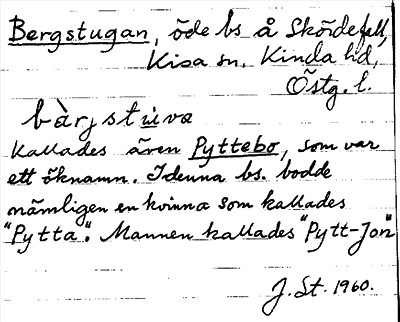 Bergstugan, öde bs å Skördefall,
Kisa sn, Kinda hd,
Östg. l.
bàrjstɯvα
Kallades även Pyttebo, som var
ett öknamn. I denna bs. bodde
nämligen en kvinna som kallades
"Pytta". Mannen kallades "Pytt-Jon"
J. St. 1960.